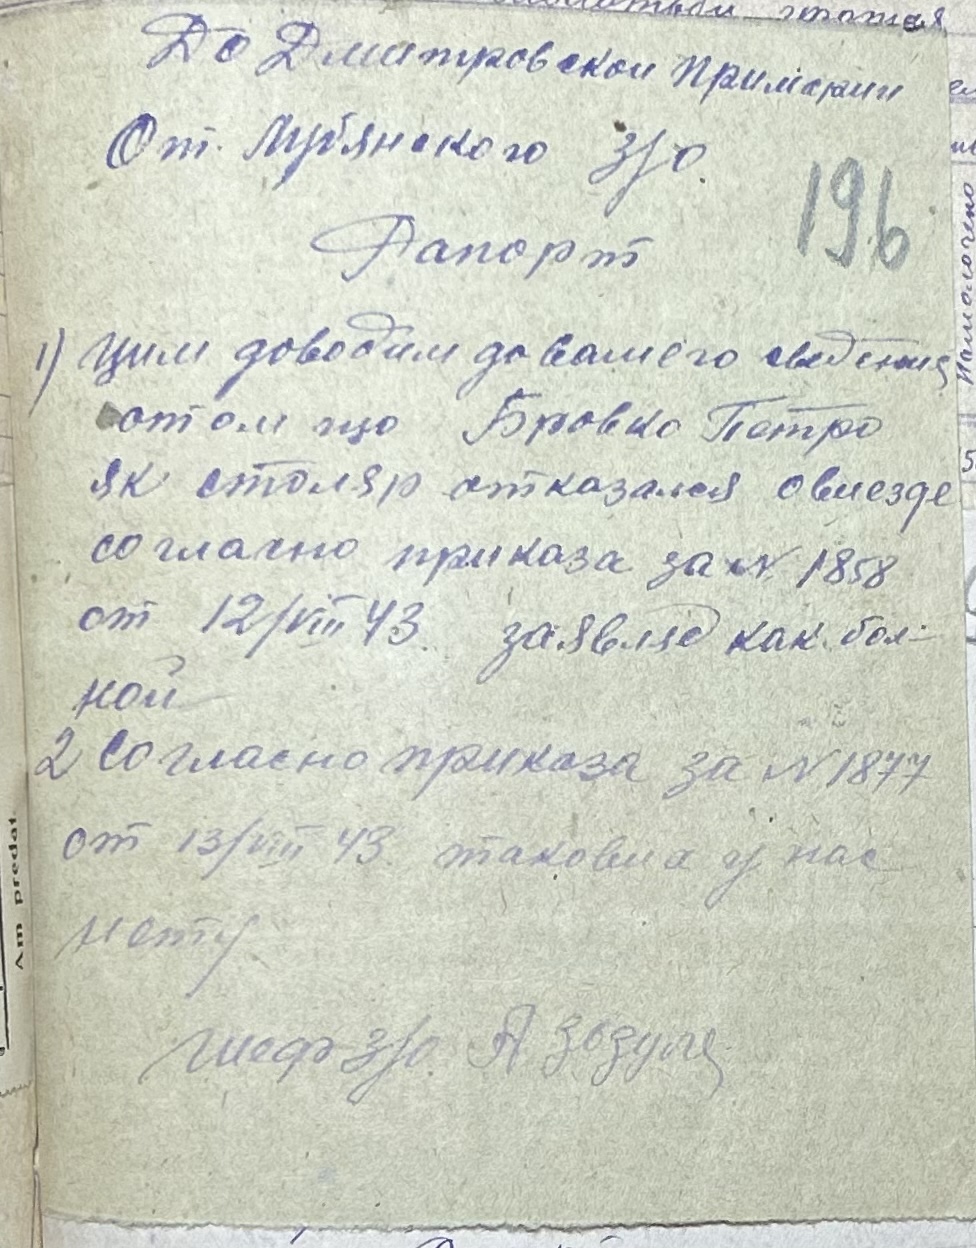 До Дмитровской Примарии
От Мубянского з/о.
196
Рапорт
1) Цим доводим до вашего сведения
отом що Бровко Петро
як столяр отказался овиезде
согласно приказа за № 1858
от 12/VIII 43. заявляе как. бол-
ной
2 Согласно приказа за № 1877
от 13/VIII 43. таковиа у нас
нету
шеф з/о. А Зозуля
Am predat
Намолочено